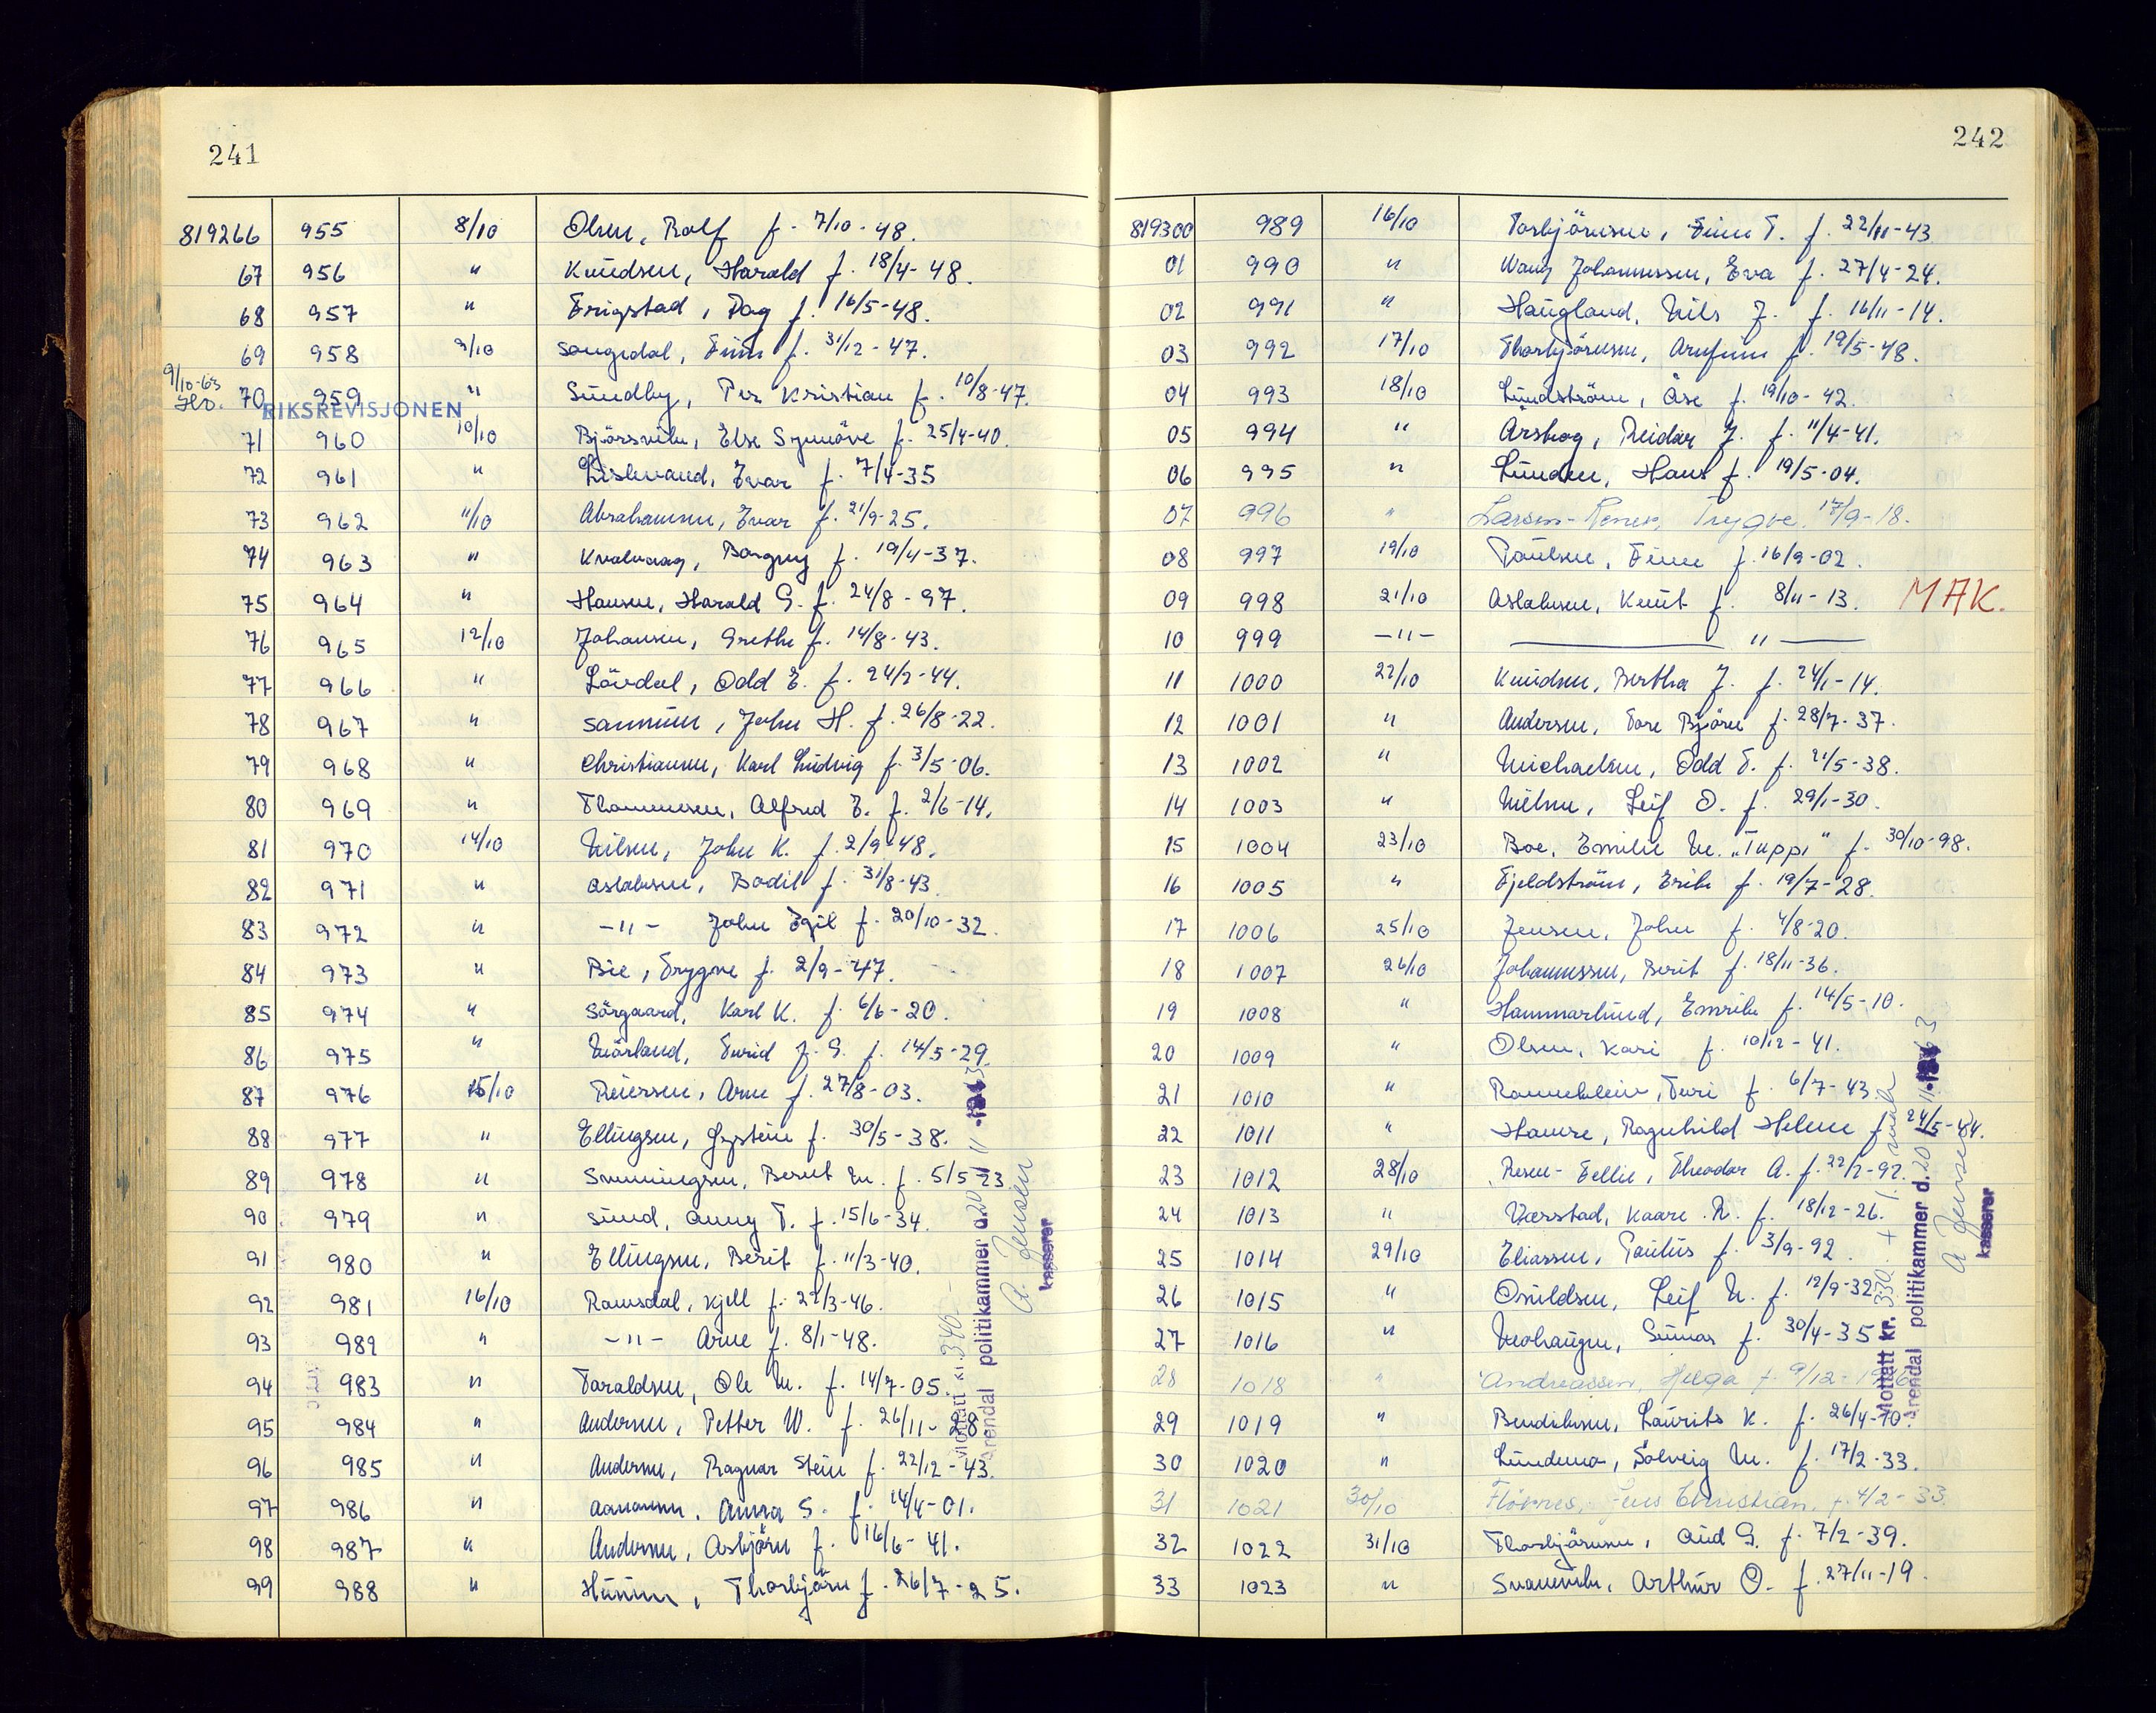 241
819266 955 8/10 Olsen, Rolf f. 7/10-48.
67 956 " Knudsen, Harald f. 18/4-48.
68 957 " Frigstad, Dag f. 16/5-48.
69 958 9/10 Songedal, Finn f. 31/12-47.
9/10-63
70 959 " Sundby, Per Kristian f. 10/8-47.
RIKSREVISJONEN
71 960 10/10 Bjorsvik, Else Synnöve f. 25/4-40.
72 961 " Lislevand, Ivar f. 7/4-35
73 962 11/10 Abrahamsen, Ivar f. 21/9-25.
74 963 " Kvalvaag, Borgny f. 19/4-37.
75 964 " Hansen, Harald G. f. 24/8-97.
76 965 12/10 Johansen, Grethe f. 14/8-43.
77 966 " Lövdal, Odd E. f. 24/2-44.
78 967 " John H. f. 26/8-22.
79 968 " Christiansen, Karl Ludvig f. 3/5-06.
80 969 " Thommesen, Alfred E. f. 2/6-14.
81 970 14/10 Nilsen, John K. f. 2/9-48.
82 971 " Aslaksen, Bodil f. 31/8-43
83 972 " -"- John Egil f. 20/10-32.
84 973 " Bie, Trygve f. 2/9-47.
85 974 " Sörgaard, Karl K. f. 6/6-20.
86 975 " Mörland, Turid J. G. f. 14/5-29.
87 976 15/10 Reiersen, Arne f. 27/8-03.
88 977 " Ellingsen, Gystein f. 30/5-38.
89 978 " Berit M. f. 5/5-23.
90 979 " Sund, Anny T. f. 15/6-34.
91 980 " Ellingsen, Berit f. 11/3-40.
92 981 16/10 Ramsdal, Kjell f. 22/3-46.
93 982 " -"- Arne f. 8/1-48.
94 983 " Taraldsen, Ole M. f. 14/7-05.
95 984 " Andersen, Petter W. f. 26/11-28
96 985 " Andersen, Ragnar Stein f. 22/12-43.
97 986 " Aanonsen, Anna S. f. 14/4-01.
98 987 " Andersen, Asbjörn f. 16/6-41.
99 988 " Thorbjörn f. 26/7-25.
Mottatt kr. 340
Arendal politikammer d. 20/11-1963
A. Jensen
kasserer
242
819300 989 16/10 Torbjörnsen, Finn T. f. 22/11-43
01 990 " Wang Johannessen, Eva f. 27/4-24.
02 991 " Haugland, Nils J. f. 16/11-14.
03 992 17/10 Thorbjörnsen, Arnfinn f. 19/5-48.
04 993 18/10 Lundström, Åse f. 19/10-42.
05 994 " Årskog, Reidar J. f. 11/4-41.
06 995 " Lunden, Hans f. 19/5-04.
07 996 " Larsen- Trygve. 17/9-18.
08 997 19/10 Paulsen, Finn f. 16/9-02.
09 998 21/10 Aslaksen, Knut f. 8/11-13. MAK.
10 999 -"- "
11 1000 22/10 Knudsen, Bertha J. f. 24/1-14.
12 1001 " Andersen, Tore Björn f. 28/7-37.
13 1002 " Michaelsen, Odd T. f. 21/5-38.
14 1003 " Nilsen, Leif O. f. 29/1-30.
15 1004 23/10 Boe, Emilie M. "Tuppi" f. 30/10-98.
16 1005 " Fjeldström, Erik f. 19/7-28.
17 1006 25/10 Jensen, John f. 4/8-20.
18 1007 26/10 Johannessen, Berit f. 18/11-36.
19 1008 " Hammarlund, Emrik f. 14/5-10.
20 1009 " Olsen, Kari f. 10/12-41.
21 1010 " Ramleklein, Turi f. 6/7-43
22 1011 " Hamre, Ragnhild Helene f. 24/5-44.
23 1012 28/10 Resen-Fellie, Theodor A. f. 22/2-92.
24 1013 " Værstad, Kaare R. f. 18/12-26.
25 1014 29/10 Eliassen, Paulus f. 3/9-92.
26 1015 " Osuldsen, Leif N. f. 12/9-32
27 1016 " Mohaugen, Gunnar f. 30/4-35
28 1018 " Andreassen, Helga f. 9/12-
29 1019 " Bendiksen, Laurits K. f. 26/4-10.
30 1020 " Lindemo, Solveig M. f. 17/2-33.
31 1021 30/10 Flörnes, Jens Christian, f. 4/2-33
32 1022 31/10 Thorbjörnsen, Aud G. f. 7/2-39.
33 1023 " Svanevik, Arthur O. f. 27/11-19.
Mottatt kr. 330.
Arendal politikammer d. 20/11-1963
A Jensen
kasserer